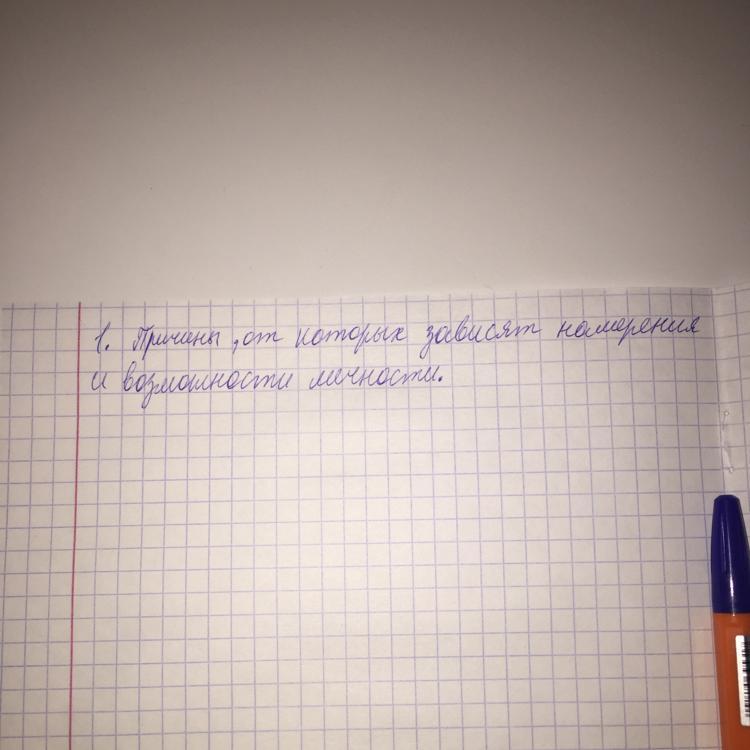 1. Причины, от которых зависят намерения
и возможности личности.